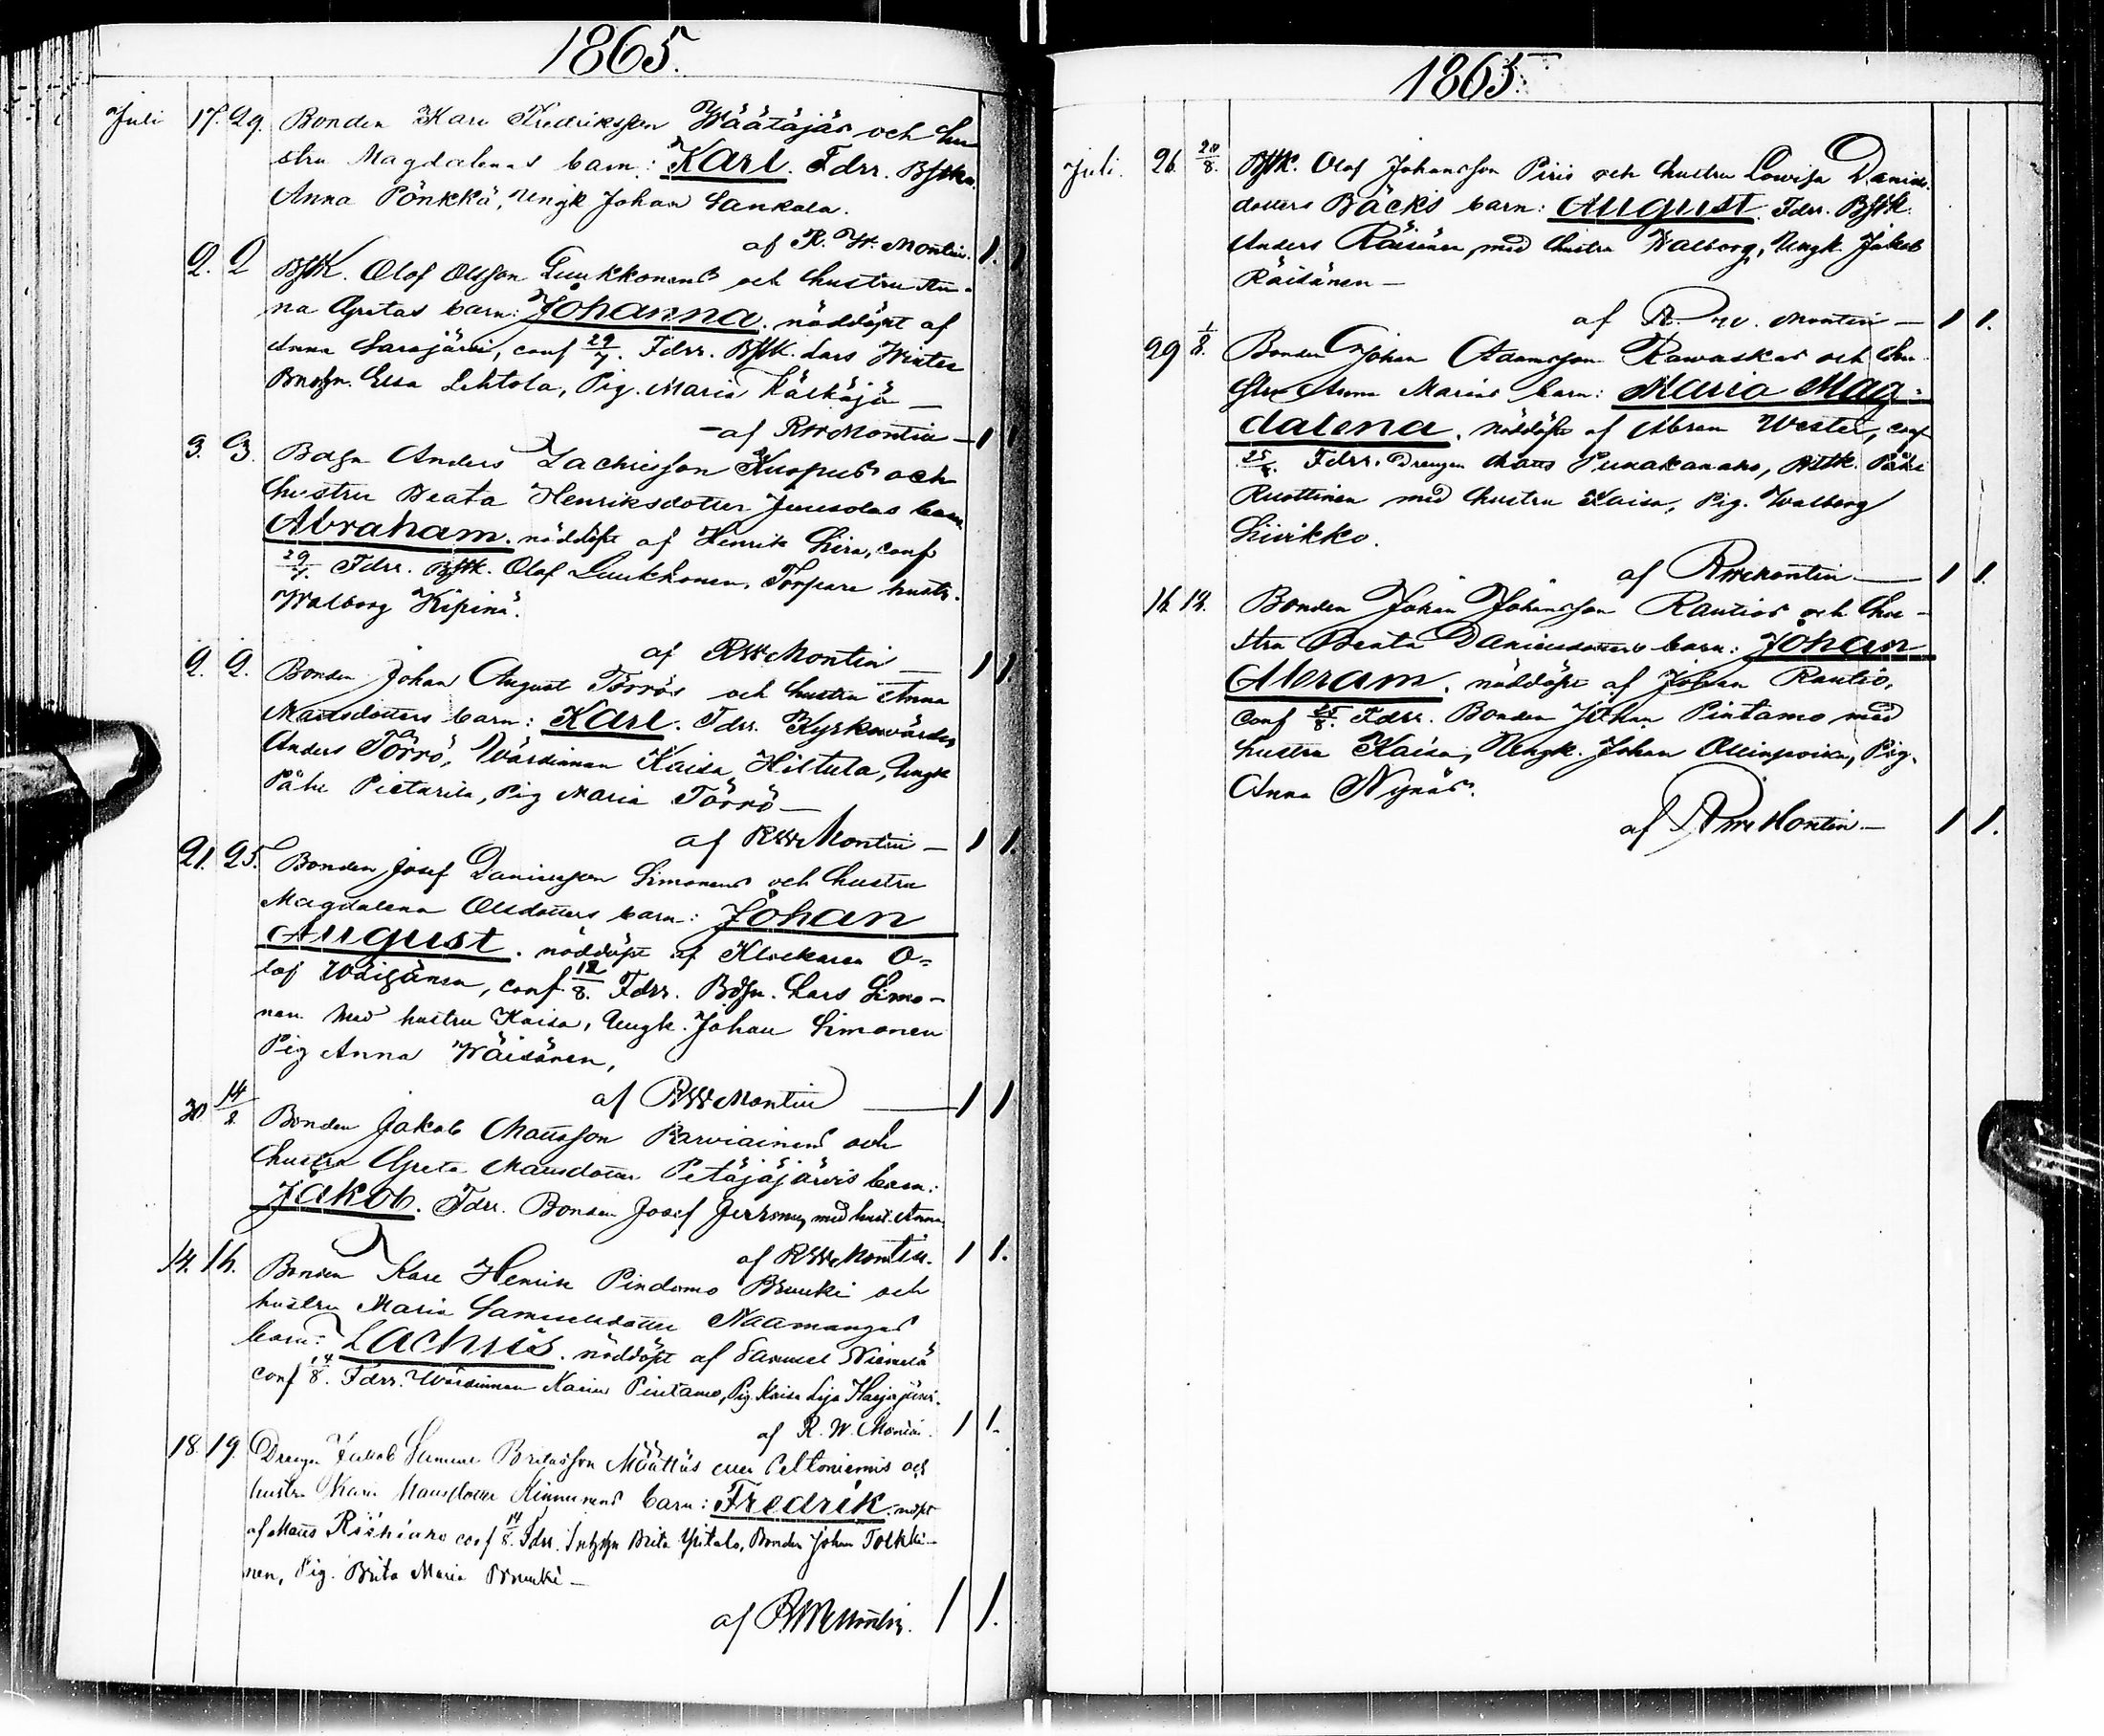 1865.
Juli 17. 29. Bonden Karl Fredriksson Wäätäjäs och hu
stru Magdalenas barn: Karl. Fdrr. Bstkn.
Anna Pönkkä, Ungk Johan Sankala.
af R. W. Montin. 1. 1
2. 2 Bstk. Olof Olsson Luukkonens och hustru An-
na Gretas barn: Johanna. nöddöpt af
Anna Sarajärvi, conf 29/7. Fdrr. Bstk. Lars Winter
Bndsn. Elsa Lehtola, Pig. Maria Kälkäjä —
- af RWMontin — 1 1
3. 3. Bdsn Anders Zachrisson Kuopus och
hustru Beata Henriksdotter Juusolas barn
Abraham. nöddöpt af Henrik Siira, conf
29/7. Fdrr. Bstk. Olof Luukkonen, Torpare hustr.
Walborg Kipinä.
af RWMontin — 1 1.
2. 2. Bonden Johan August Törrös och hustru Anna
Mattsdotters barn: Karl. Fdrr. Kyrkovärden
Anders Törrö, Wärdinnan Kaisa Hiltula, Ungk
Påhl Pietarila, Pig Maria Törrö —
af RWMontin — 1 1.
21. 25. Bonden Josef Danielsson Simonens och hustru
Magdalena Olsdotters barn: Johan
August. nöddöpt af Klockaren O=
lof Wäisänen, conf 12/8. Fdrr. Bdsn. Lars Simo-
nen med hustru Kaisa, Ungk. Johan Simonen
Pig Anna Wäisänen,
af RWMontin — 1 1
30 14/8 Bonden Jakob Mattsson Parviainens och
hustru Greta Mattsdotter Petäjäjärvis barn:
Jakob. Fdrr. Bonden Josef med hust. Anna.
af RWMontin. 1 1.
14. 16. Bonden Karl Henrik Pindamo Bruuki och
hustru Maria Samuelsdotter Naamangas
barn: Zachris. nöddöpt af Samuel Niemelä
conf 14/8. Fdrr. Wärdinnan Maria Pintamo, Pig. Kaisa Lisa Harjajärvi.
af R. W. Montin. 1 1.
18. 19. Drengen Jakob Samuel Määttäs eller Peltoniemis och
hustru Maria Mattsdotter Kinnunens barn: Fredrik. nöpt
af Matts conf 14/8. Fdrr. Brita Ypitalo, Bonden Johan Tolkki-
nen, Pig. Brita Maria Bruuki —
af RWMontin. 1 1.
1865.
Juli. 26. 20/8. Bstk. Olof Johansson Piris och hustru Lovisa Daniels
dotters Bäcks barn: August. Fdrr. Bstk.
Anders Räisänen, med hustru Walborg, Ungk. Jakob
Räisänen —
af R. W. Montin — 1 1.
29 1/8. Bonden Johan Adamsson Rawaskas och hu-
stru Anna Marias barn: Maria Mag=
dalena. nöddöpt af Abram Wester, conf
25/8. Fdrr. Drengen Matts Punakanaho, Bstk. Påhl
Ruottinen med hustru Kaisa, Pig. Walborg
Siirikko.
af RWMontin — 1 1.
16. 19. Bonden Johan Johansson Rautios och hu-
stru Beata Danielsdotters barn: Johan
Abram. nöddöpt af Johan Rautio,
conf 25/8. Fdrr. Bonden Johan Pintamo med
hustru Kaisa, Ungk. Johan Ollinpoika, Pig.
Anna Nynäs.
af RWMontin — 1 1.